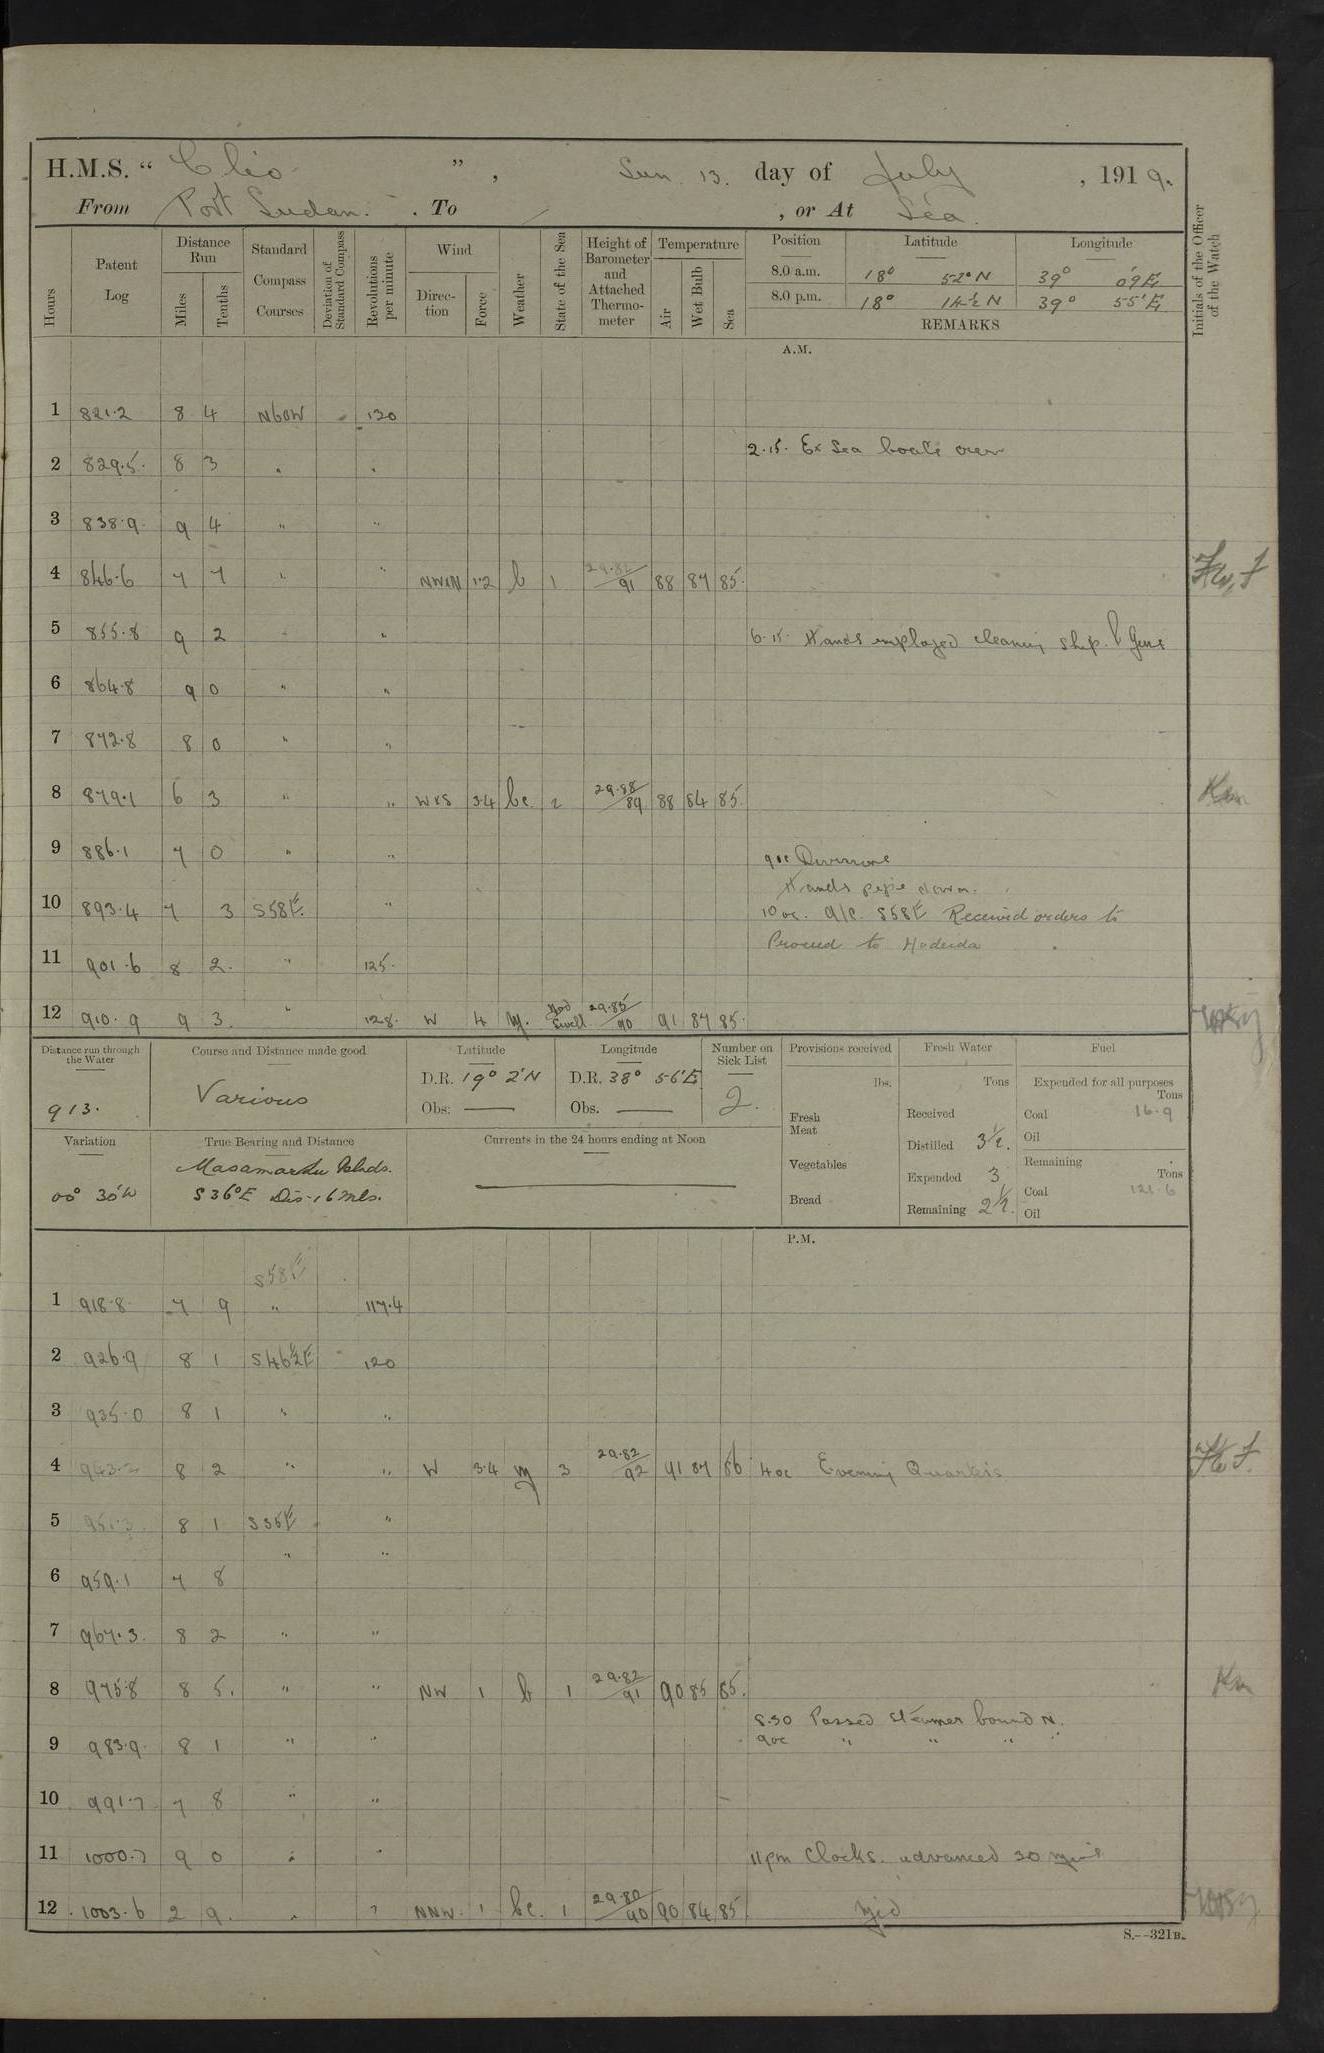 H.M.S. “ Clio ” , Sun 13. day of July , 1919.
From Port Sudan. . To / , or At Sea.
Hours Patent Log Distance Run Miles Tenths Standard Compass Courses Deviation of Standard Compass Revolutions per minute Wind Direc-tion Force Weather State of the Sea Height of Barometer and Attached Thermo-meter Temperature Air Wet Bulb Sea Position Latitude Longitude Initials of the Officer of the Watch
8.0 a.m. 18° 52° N 39° 09'E
8.0 p.m. 18° 14½ N 39° 55'E
REMARKS
A.M.
1 821.2 8 4 N60W 120
2.15. Ex Sea boats crew
2 829.5. 8 3 " "
3 838.9 9 4 " "
4 846.6 7 7 " " NWxN 1.2 b 1 29.82/91 88 87 85.
5 855.8 9 2 " " 6.15. Hands employed cleaning ship. & Guns
6 864.8 9 0 " "
7 872.8 8 0 " "
8 879.1 6 3 " " WxS 3.4 bc. 2 29.88/89 88 84 85.
9 886.1 7 0 " " 9oc Divisions
Hands pipe down.
10 893.4 7 3 S58E. " 10 oc. A/C. S58E Received orders to
Proceed to Hodeida
11 901.6 8 2. " 125.
12 910.9 9 3. " 128. W 4 m. Mod Swell 29.85/90 91 87 85.
Distance run through the Water Course and Distance made good Latitude Longitude Number on Sick List Provisions received Fresh Water Fuel
D.R. 19° 2'N D.R. 38° 56'E lbs. Tons Expended for all purposes Tons
913. Various Obs: —— Obs. —— 2. Fresh Meat Received Coal 16.9
Variation True Bearing and Distance Currents in the 24 hours ending at Noon Distilled 3½. Oil
Masamarhu Islnds. Vegetables Remaining Tons
00° 30'W S36°E Dis-16 mls. Expended 3 Coal 121.6
Bread Remaining 2½. Oil
P.M.
S58E
1 918.8 7 9 " 117.4
2 926.9 8 1 S46½E 120
3 935.0 8 1 " "
4 943.2 8 2 " " W 3.4 m 3 29.82/92 91 87 86 4oc Evening Quarters
5 951.3 8 1 S35E "
" "
6 959.1 7 8
7 967.3. 8 2 " "
8 975.8 8 5. " " NW 1 b 1 29.82/91 90 85 85.
8.30 Passed steamer bound N.
9 983.9. 8 1 " " 9oc " " " "
10 991.7 7 8 " "
11 1000.7 9 0 " " 11pm Clocks. advanced 30 mins
12 1003.6 2 9. " " NNW. 1 bc. 1 29.80/90 90 84 85 Mid
S.--321B.